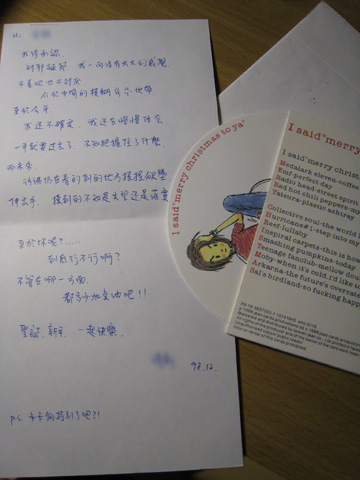 Hi,
我得承認,
對耶誕節 我一向沒有太大的感覺
不喜歡也不討厭
介於中間的模糊灰色地帶
至於今年
我還不確定, 我還在慢慢體會
一年就要過去了, 不知把握住了什麼,
而未來
彷彿仍在看的到的地方搖搖欲墜
伸出手, 摸到的不知是失望還是落寞
至於你呢?......
到底行不行啊?
不管在哪一方面,
都多少加油吧!!
聖誕、新年 一起快樂
98.12.
P.S. 卡片夠特別了吧?!
I said"merry christmas to ya"
I said"merry
I said"merry christ
Medalark eleven-coffee
Emf-perfect day
Radio head-street spirit
Red hot chili peppers-
Yatsura-plastic ashtray
Collective soul-the world I
Hurricane#1-step into my
Beef-lullaby
Inspiral carpets-this is how
Smashing pumpkins-today
Teenage fanclub-mellow dou
Moby-when it's cold,i'd like to
Arkarna-the future's overrate
Sal's birdland-so fucking happ